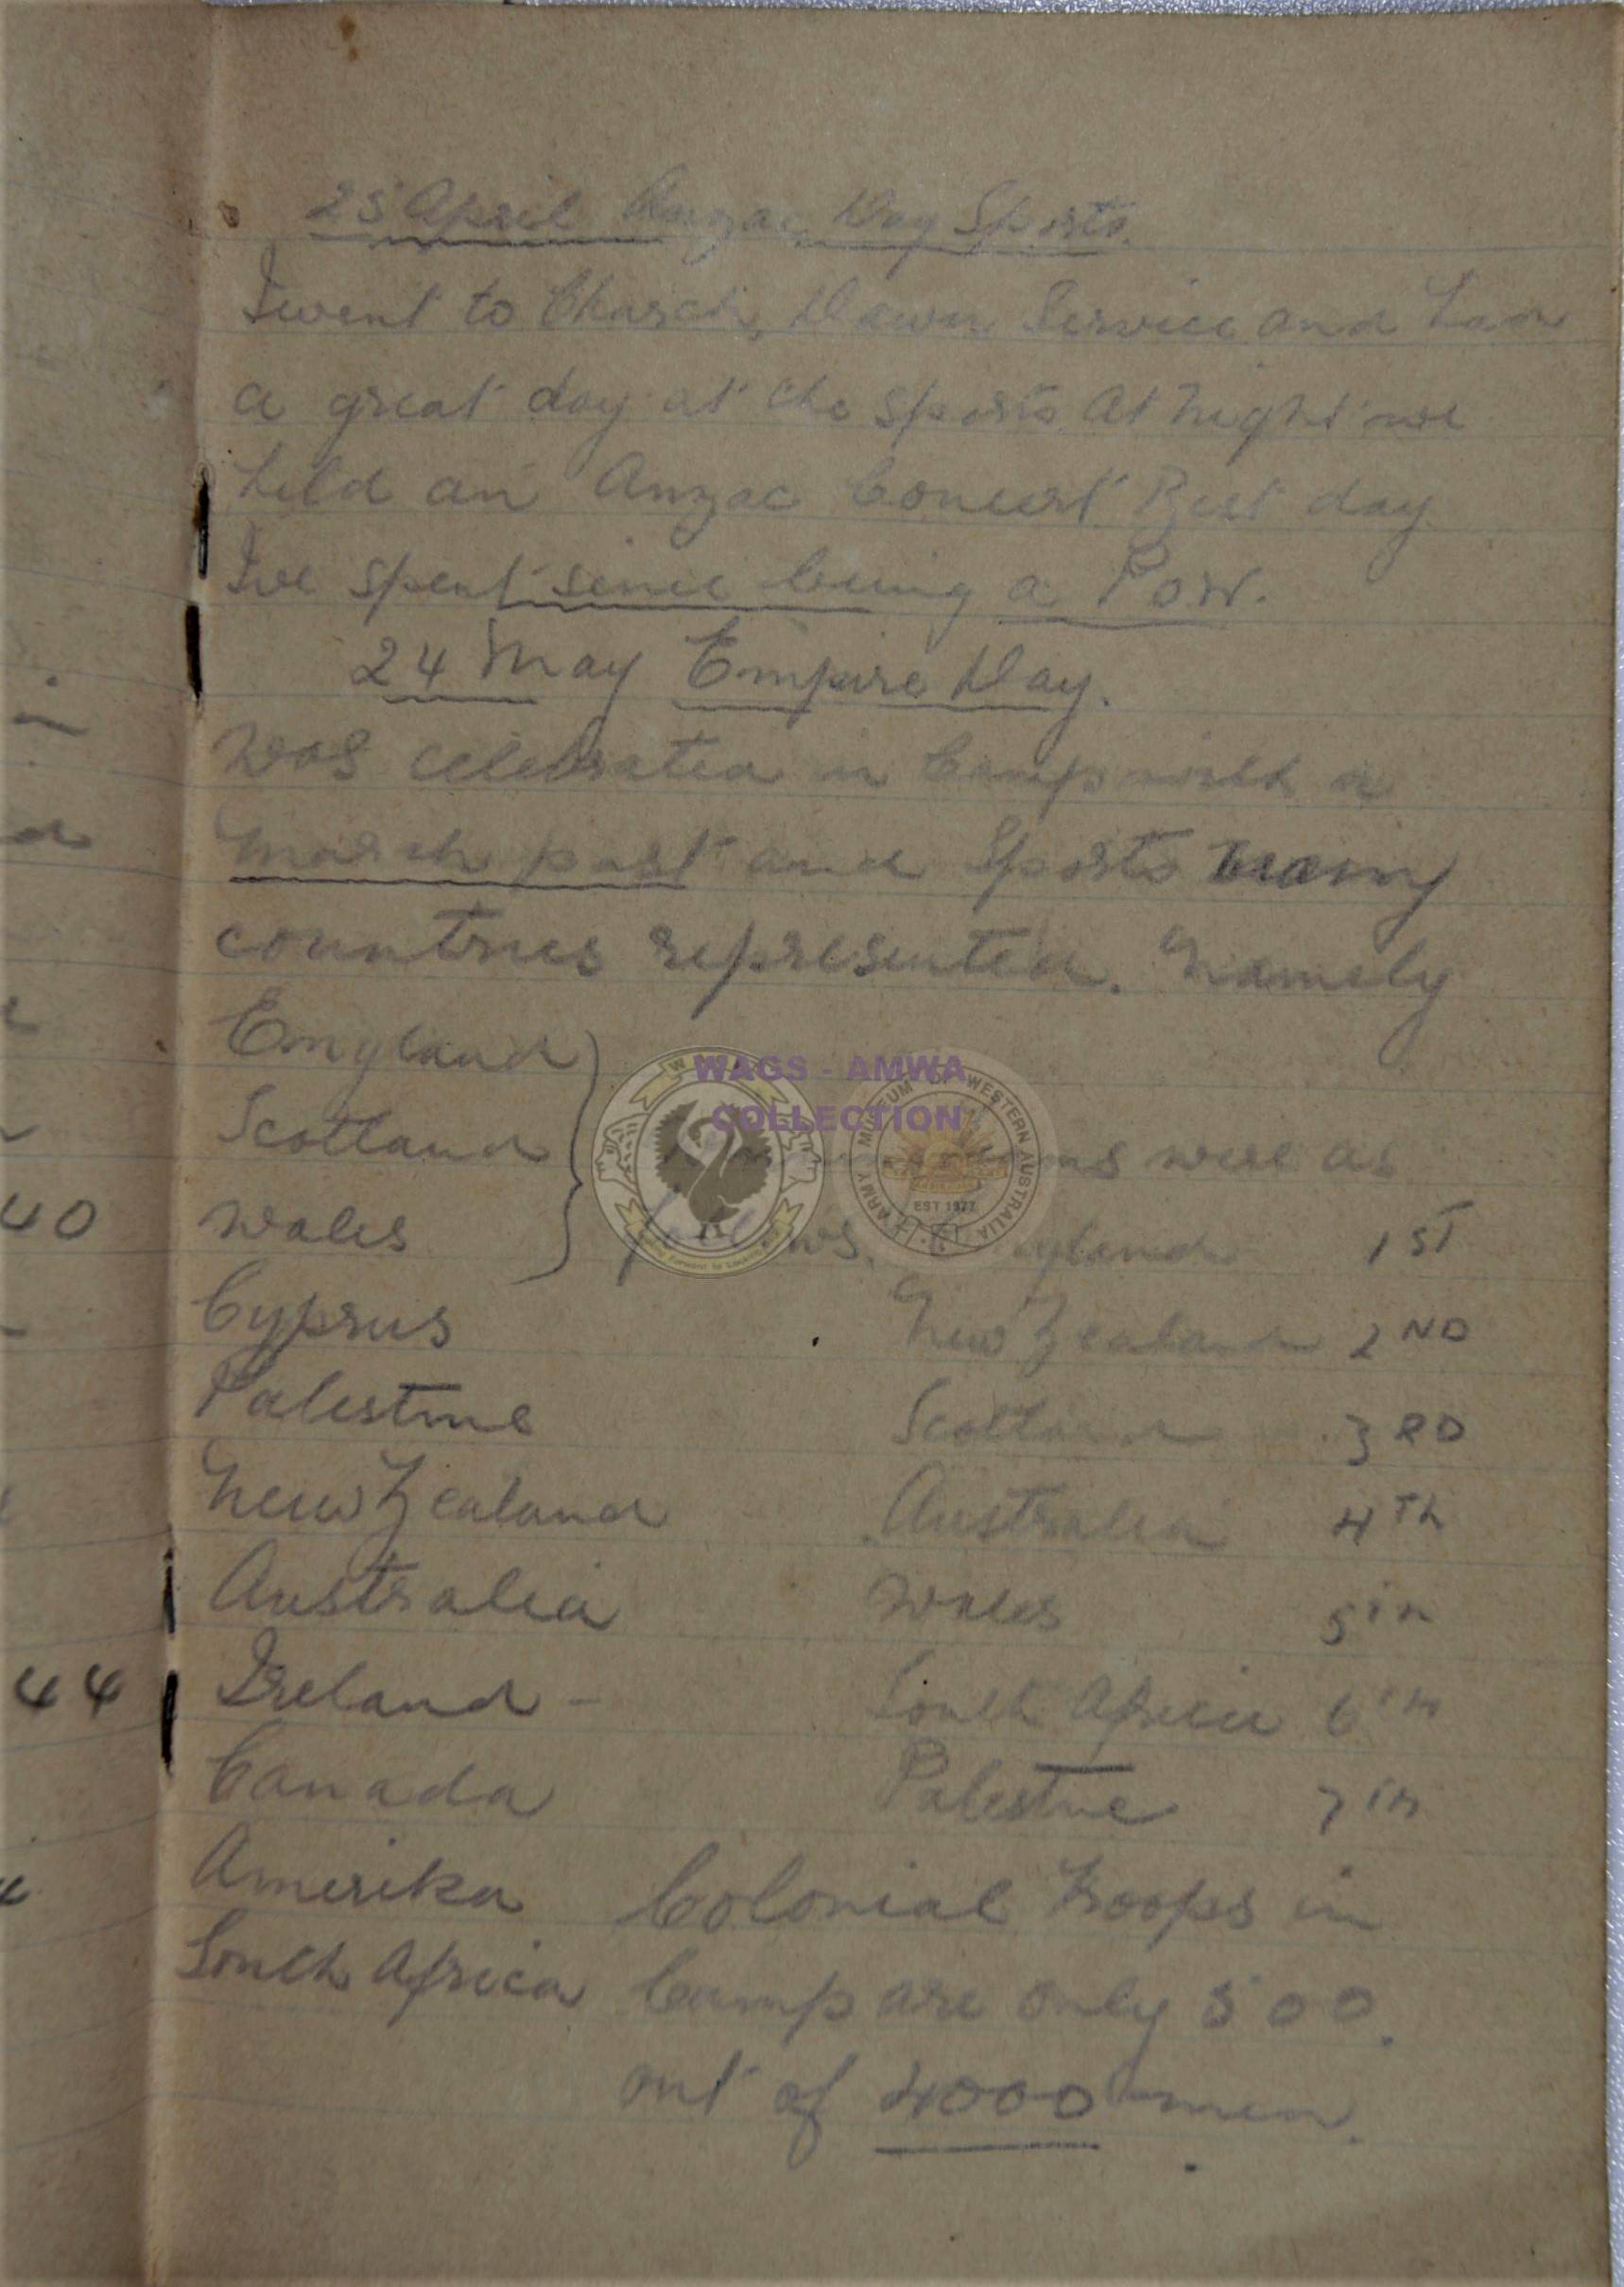 25 April Anzac Day Sports.
I went to Church, Dawn Service and had
a great day at the sports. At night we
held an Anzac Concert. Best day
I've spent since being a P.O.W.
24 May Empire Day.
Was celebrated in Camp with a
march past and Sports many
countries represented. Namely
England
Scotland
Wales
Cyprus
Palestine
New Zealand
Australia
Ireland -
Canada
Amerika
South Africa
were as
follows. England 1ST
New Zealand 2ND
Scotland 3RD
Australia 4TH
Wales 5TH
South Africa 6TH
Palestine 7TH
Colonial Troops in
Camp are only 500.
out of 4000 men.
WAGS - AMWA
COLLECTION
ARMY MUSEUM OF WESTERN AUSTRALIA
EST 1977
40
44